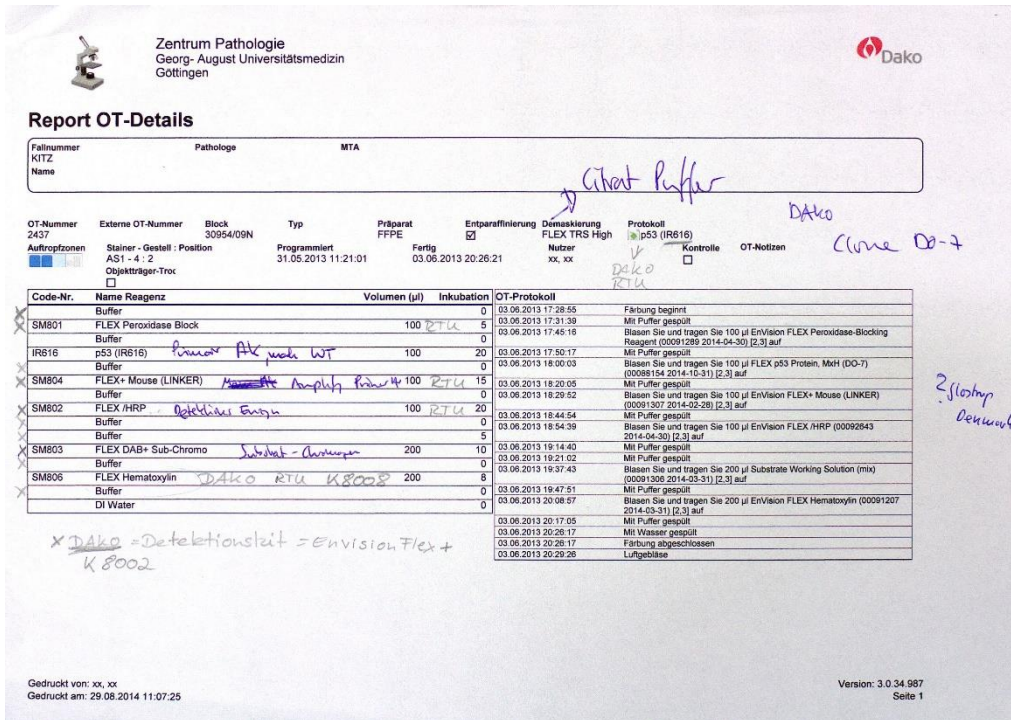 Zentrum Pathologie
Georg- August Universitätsmedizin
Göttingen
Dako
Report OT-Details
Fallnummer Pathologe MTA
KITZ
Name
Citrat Puffer
DAKO
Clone DO-7
OT-Nummer Externe OT-Nummer Block Typ Präparat Entparaffinierung Demaskierung Protokoll
2437 30954/09N FFPE FLEX TRS High p53 (IR616)
Auftropfzonen Stainer - Gestell : Position Programmiert Fertig Nutzer Kontrolle OT-Notizen
AS1 - 4 : 2 31.05.2013 11:21:01 03.06.2013 20:26:21 xx, xx
Objektträger-Troc
DAKO
RTU
Code-Nr. Name Reagenz Volumen (µl) Inkubation
Buffer 0
SM801 FLEX Peroxidase Block 100 RTU 5
Buffer 0
IR616 p53 (IR616) Primär AK nach WT 100 20
Buffer 0
SM804 FLEX+ Mouse (LINKER) 100 RTU 15
Buffer 0
SM802 FLEX /HRP Detektions Enzym 100 RTU 20
Buffer 0
Buffer 5
SM803 FLEX DAB+ Sub-Chromo Substrat - Chromogen 200 10
Buffer 0
SM806 FLEX Hematoxylin DAKO RTU K8008 200 8
Buffer 0
DI Water 0
OT-Protokoll
03.06.2013 17:28:55 Färbung beginnt
03.06.2013 17:31:39 Mit Puffer gespült
03.06.2013 17:45:16 Blasen Sie und tragen Sie 100 µl EnVision FLEX Peroxidase-Blocking
Reagent (00091289 2014-04-30) [2,3] auf
03.06.2013 17:50:17 Mit Puffer gespült
03.06.2013 18:00:03 Blasen Sie und tragen Sie 100 µl FLEX p53 Protein, MxH (DO-7)
(00088154 2014-10-31) [2,3] auf
03.06.2013 18:20:05 Mit Puffer gespült
03.06.2013 18:29:52 Blasen Sie und tragen Sie 100 µl EnVision FLEX+ Mouse (LINKER)
(00091307 2014-02-28) [2,3] auf
03.06.2013 18:44:54 Mit Puffer gespült
03.06.2013 18:54:39 Blasen Sie und tragen Sie 100 µl EnVision FLEX /HRP (00092643
2014-04-30) [2,3] auf
03.06.2013 19:14:40 Mit Puffer gespült
03.06.2013 19:21:02 Mit Puffer gespült
03.06.2013 19:37:43 Blasen Sie und tragen Sie 200 µl Substrate Working Solution (mix)
(00091306 2014-03-31) [2,3] auf
03.06.2013 19:47:51 Mit Puffer gespült
03.06.2013 20:08:57 Blasen Sie und tragen Sie 200 µl EnVision FLEX Hematoxylin (00091207
2014-03-31) [2,3] auf
03.06.2013 20:17:05 Mit Puffer gespült
03.06.2013 20:26:17 Mit Wasser gespült
03.06.2013 20:26:17 Färbung abgeschlossen
03.06.2013 20:29:26 Luftgebläse
? Glostrup
Denmark
x DAKO = Detektionskit = Envision Flex +
K8002
Gedruckt von: xx, xx
Gedruckt am: 29.08.2014 11:07:25
Version: 3.0.34.987
Seite 1